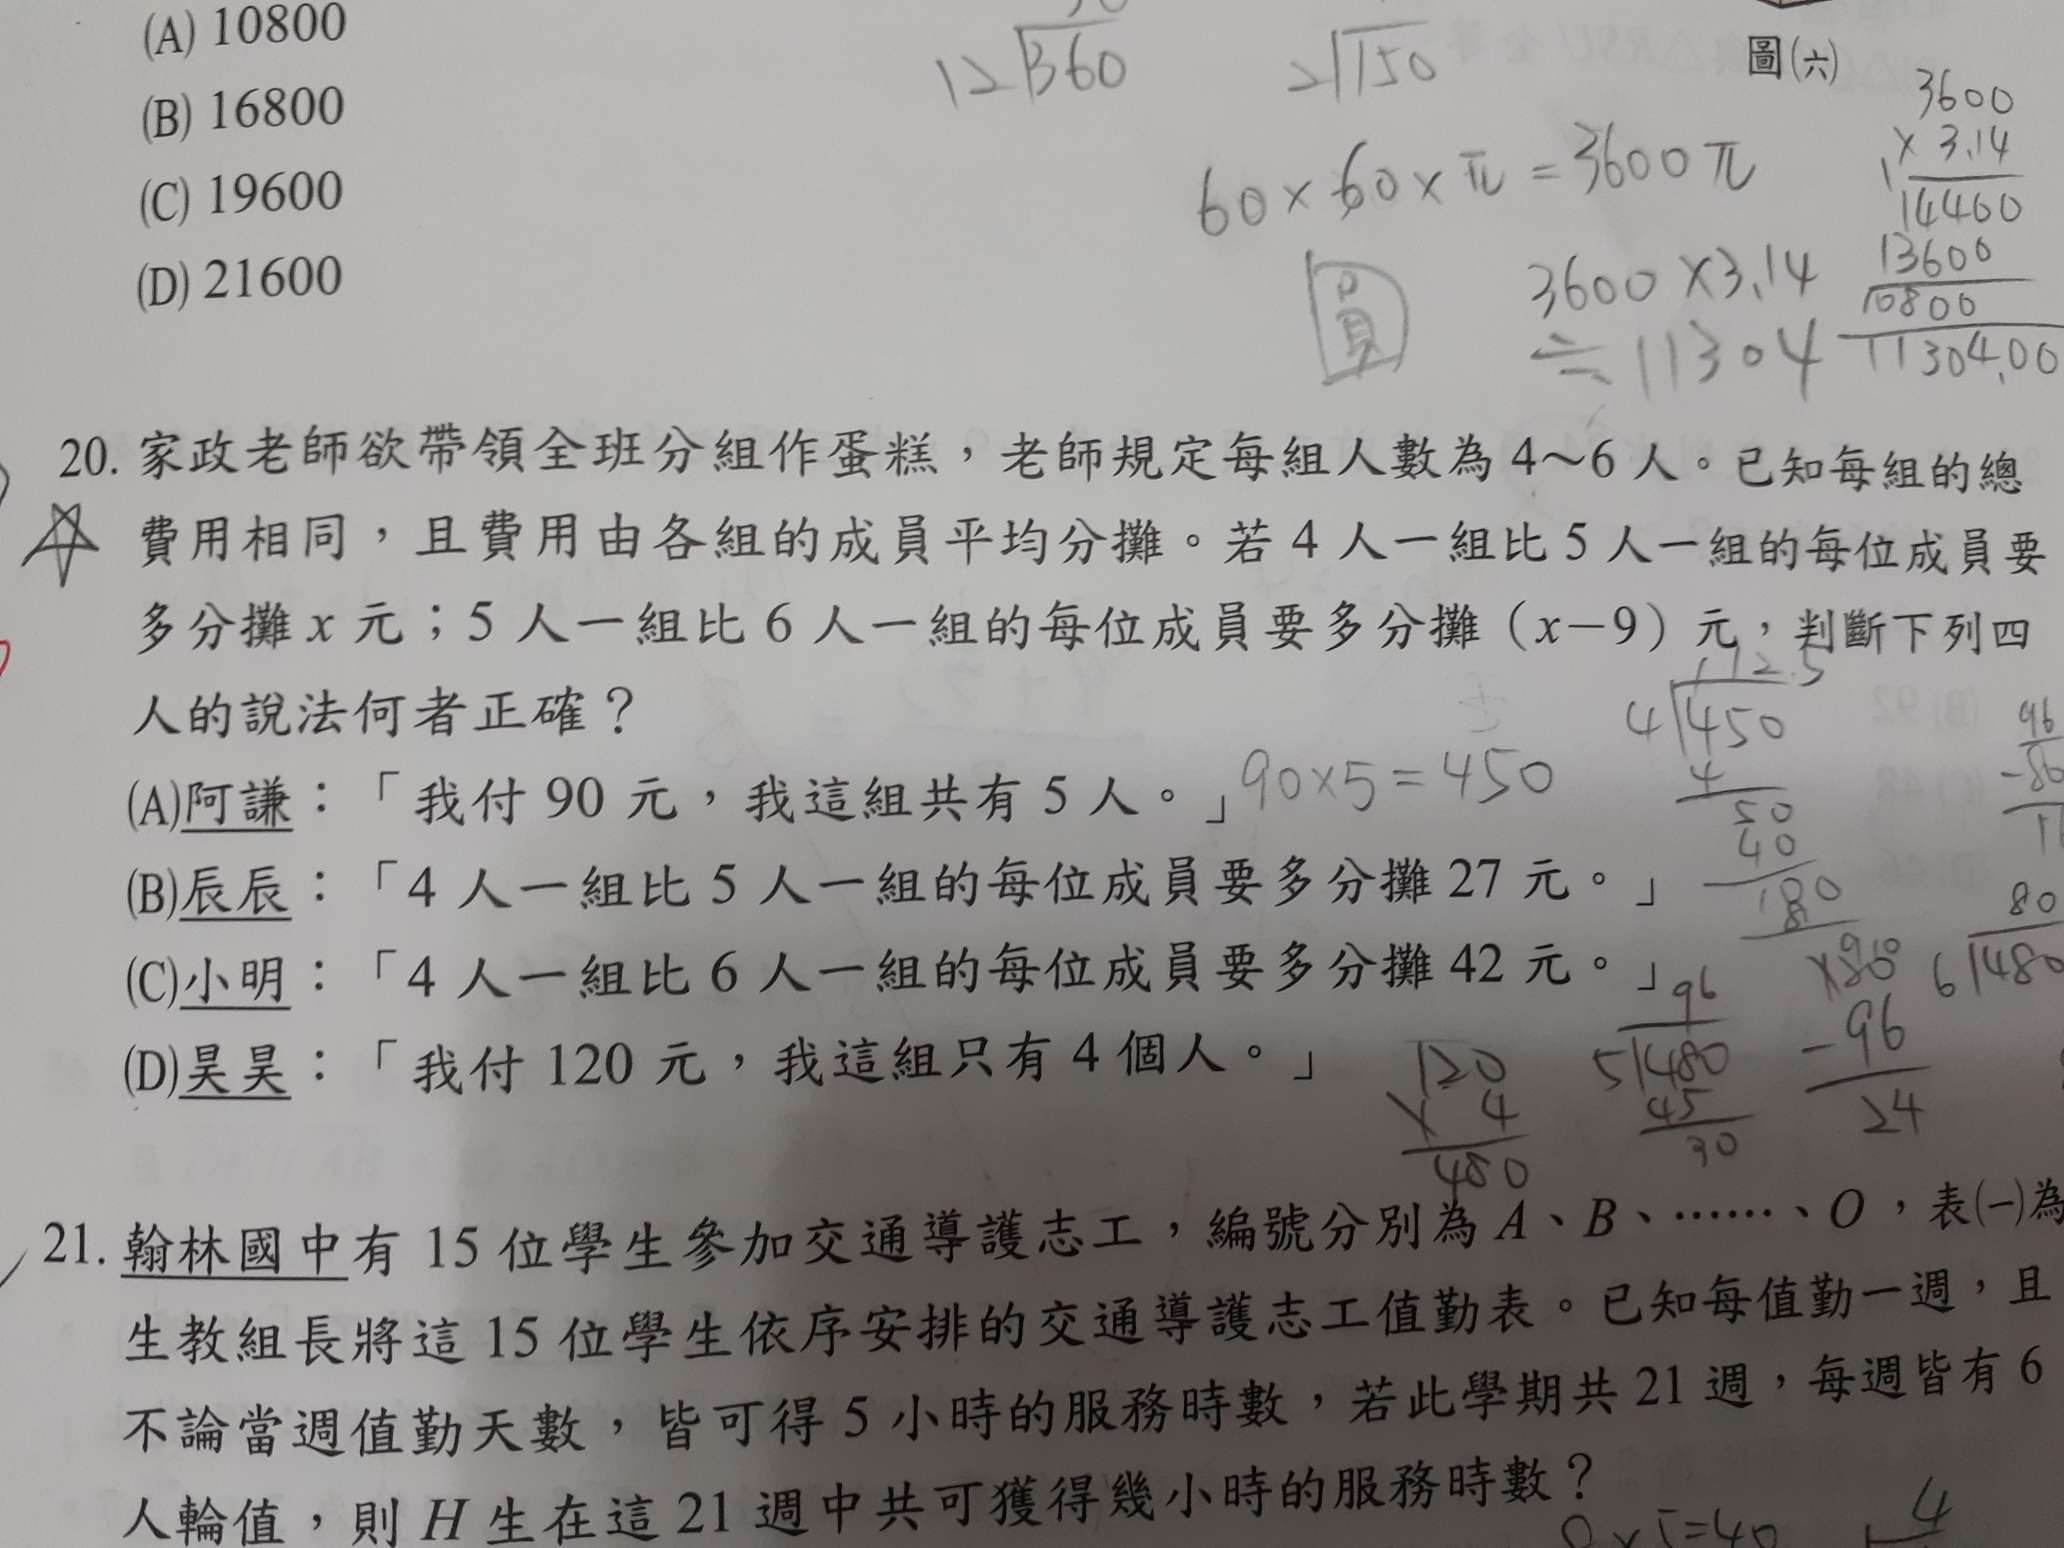 (A) 10800
12 360
2 150
圖(六)
(B) 16800
3600
× 3.14
14400
13600
10800
11304.00
60×60×π=3600π
(C) 19600
(D) 21600
圓
3600×3.14
≒11304
20. 家政老師欲帶領全班分組作蛋糕，老師規定每組人數為4～6人。已知每組的總
費用相同，且費用由各組的成員平均分攤。若4人一組比5人一組的每位成員要
多分攤x元；5人一組比6人一組的每位成員要多分攤（x－9）元，判斷下列四
人的說法何者正確？
112.5
4 450
4
50
40
80
96
-80
(A)阿謙：「我付90元，我這組共有5人。」90×5=450
(B)辰辰：「4人一組比5人一組的每位成員要多分攤27元。」
80
6 480
(C)小明：「4人一組比6人一組的每位成員要多分攤42元。」
96
5 480
45
30
-96
24
(D)昊昊：「我付120元，我這組只有4個人。」
120
× 4
480
21. 翰林國中有15位學生參加交通導護志工，編號分別為A、B、……、O，表(一)為
生教組長將這15位學生依序安排的交通導護志工值勤表。已知每值勤一週，且
不論當週值勤天數，皆可得5小時的服務時數，若此學期共21週，每週皆有6
人輪值，則H生在這21週中共可獲得幾小時的服務時數？
×5=40
4